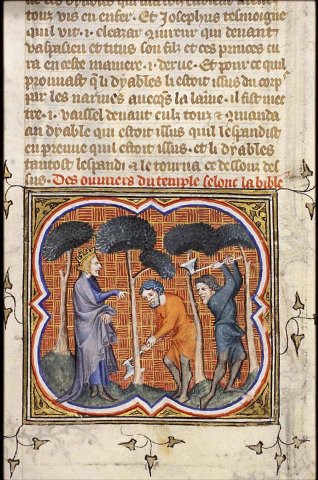 tous vis en enfer. Et Josephus tesmoigne
quil vit .i. eleazar qui devant
vaspasien et titus son filz et ces princes cu
ra en ceste maniere .i. derve. Et pour ce quil
prouvast que li dyables li estoit issus du corps
par les narines avecques la laine. il fist met
tre .i. vaissel devant eulz touz & manda
au dyable qui estoit issus quil lespandist
en preuve quil estoit issus. et li dyables
tantost lespandi & le tourna ce dessouz des
sus. Des ouvriers du temple selont la bible